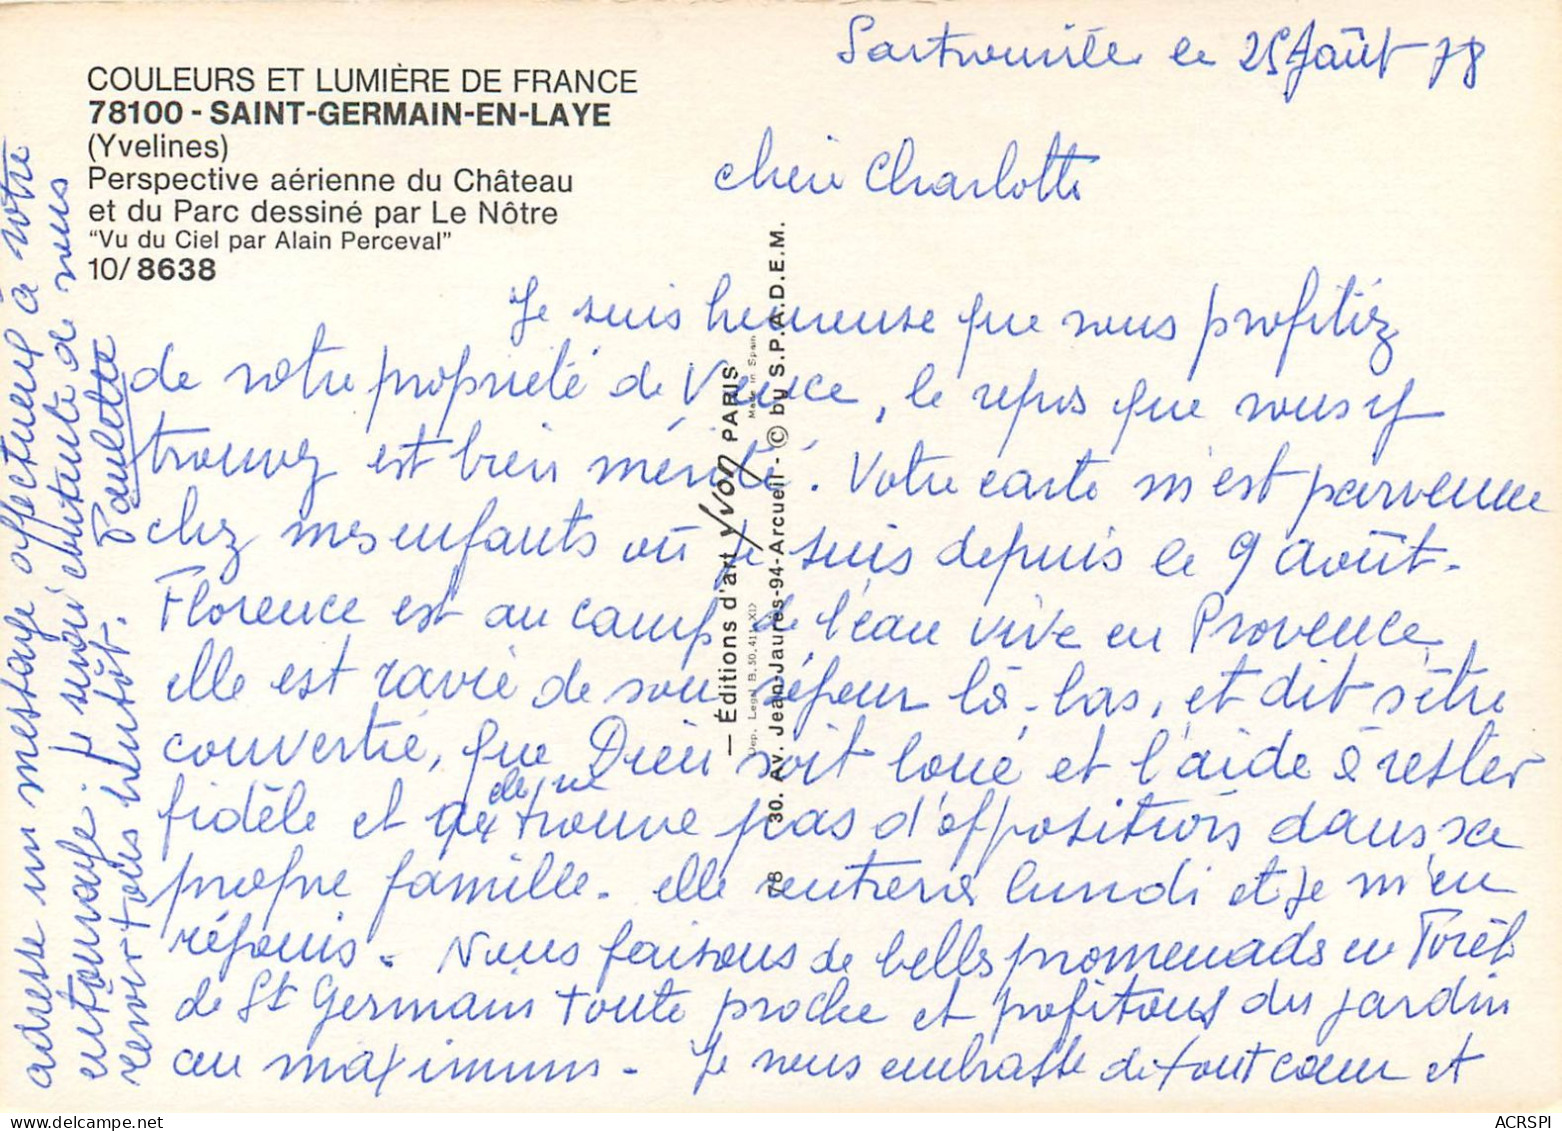 COULEURS ET LUMIÈRE DE FRANCE
78100 - SAINT-GERMAIN-EN-LAYE
(Yvelines)
Perspective aérienne du Château
et du Parc dessiné par Le Nôtre
"Vu du Ciel par Alain Perceval"
10/ 8638
Sartrouville le 25 Août 78
chère Charlotte
Je suis heureuse que vous profitiez
de votre propriété de Vence, le repos que vous y
trouvez est bien mérité. Votre carte m'est parvenue
chez mes enfants où je suis depuis le 9 août.
Florence est au camp de l'eau vive en Provence
elle est ravie de son séjour là-bas, et dit s'être
convertie, que Dieu soit loué et l'aide à rester
fidèle et de ne trouve pas d'oppositions dans sa
propre famille. elle rentrera lundi et je m'en
réjouis. Nous faisons de belles promenades en Forêt
de St Germain toute proche et profitons du jardin
au maximum. Je vous embrasse de tout cœur et
adresse un message affectueux à votre
entourage. Je serai contente de vous
revoir tous bientôt.
Paulette
— Éditions d'art Yvon PARIS
Made in Spain
Dep. Legal B. 50.411-XIX
78 30. Av. Jean-Jaures-94-Arcueil - © by S.P.A.D.E.M.
ACRSPI